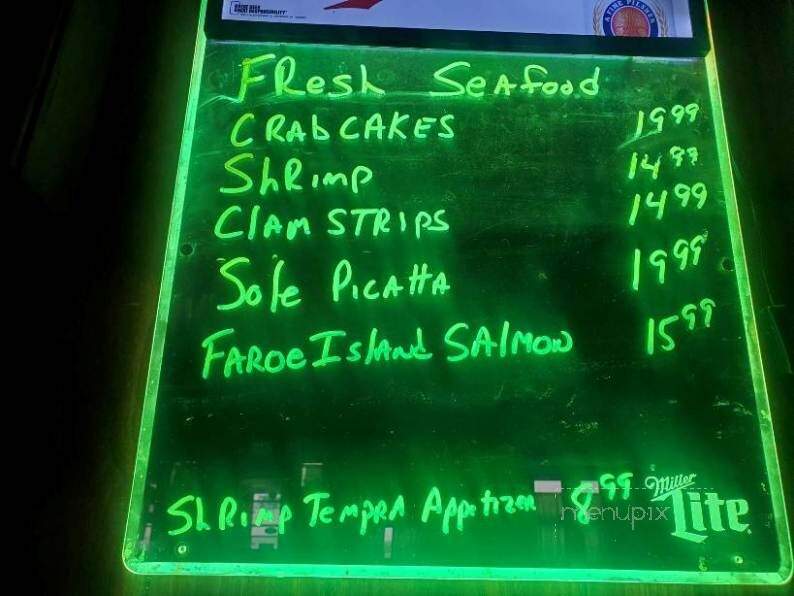 FResh SeAfood
CRAb CAKES 19.99
ShRimp 14.99
ClAm STRIPS 14.99
Sole PICAttA 19.99
FAROe IslAnd SAlMON 15.99
ShRimp TempRA Appetizer 8.99
Miller
Lite
menupix